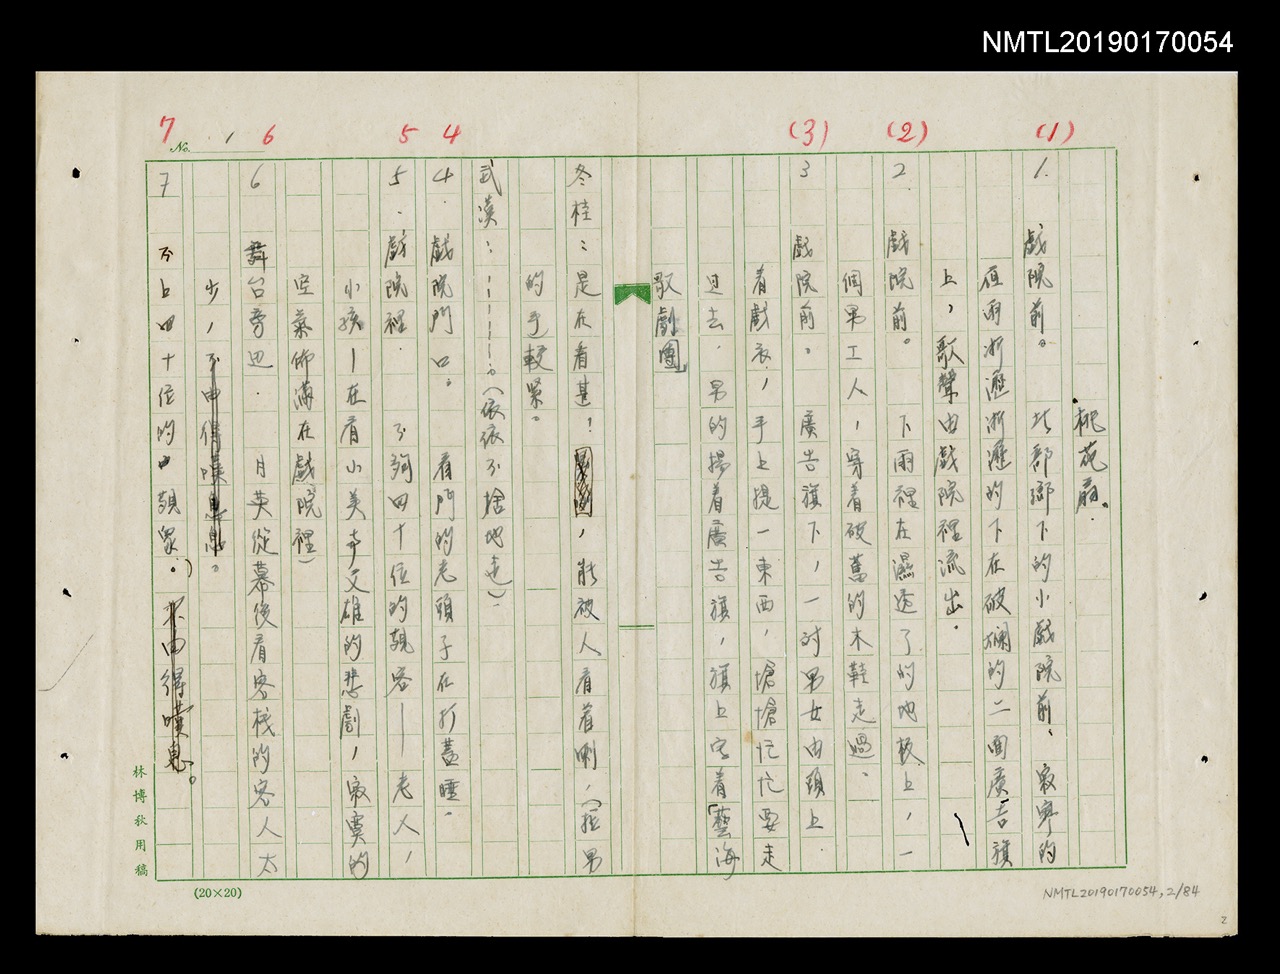 NMTL20190170054
(1) (2) (3) 4 5 6 7
No. 1
桃花扇。
1. 戲院前。 北部鄉下的小戲院前、寂寧的
夜雨淅瀝淅瀝的下在破爛的二面廣告旗
上,歌聲由戲院裡流出.
2. 戲院前。 下雨裡在濕透了的地板上,一
個男工人,穿着破舊的木鞋走過、
3 戲院前。 廣告旗下,一対男女由頭上
着戲衣,手上提一東西,愴愴忙忙要走
過去.男的揚着廣告旗,旗上写着「藝海
歌劇團」
冬桂:是在看甚!,能被人看着咧,(拉男
的手較緊。
武漢:……。(依依不捨地走).
4. 戲院門口。 看門的老頭子在打蓋睡.
5. 戲院裡. 不夠四十位的観客——老人,
小孩—在看小美与文雄的悲劇,寂寞的
空氣佈滿在戲院裡)
6 舞台旁边. 月英從幕後看客栈的客人太
少,不由得嘆息。
7 不上四十位的観象。)不由得嘆息。
林博秋用稿
(20×20)
NMTL20190170054,2/84
2